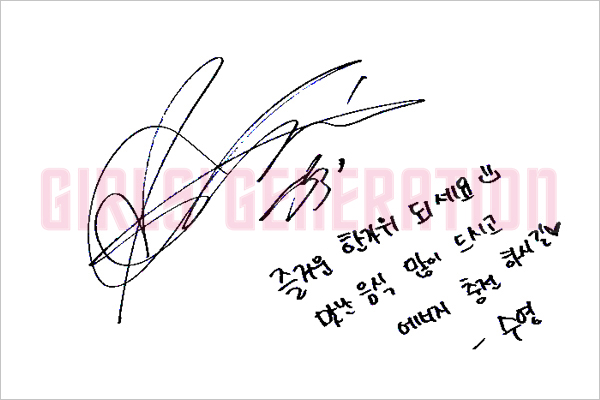 GIRLS' GENERATION
즐거운 한가위 되세요
맛난 음식 많이 드시고
에너지 충전 하시길♥
- 수영